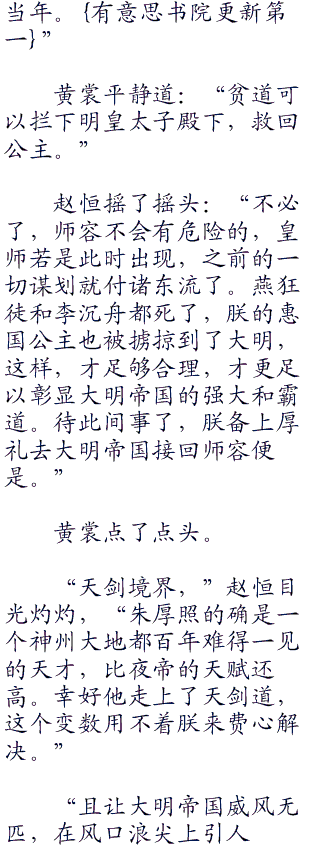 当年。{有意思书院更新第
一}”
黄裳平静道：“贫道可
以拦下明皇太子殿下，救回
公主。”
赵恒摇了摇头：“不必
了，师容不会有危险的，皇
师若是此时出现，之前的一
切谋划就付诸东流了。燕狂
徒和李沉舟都死了，朕的惠
国公主也被掳掠到了大明，
这样，才足够合理，才更足
以彰显大明帝国的强大和霸
道。待此间事了，朕备上厚
礼去大明帝国接回师容便
是。”
黄裳点了点头。
“天剑境界，”赵恒目
光灼灼，“朱厚照的确是一
个神州大地都百年难得一见
的天才，比夜帝的天赋还
高。幸好他走上了天剑道，
这个变数用不着朕来费心解
决。”
“且让大明帝国威风无
匹，在风口浪尖上引人